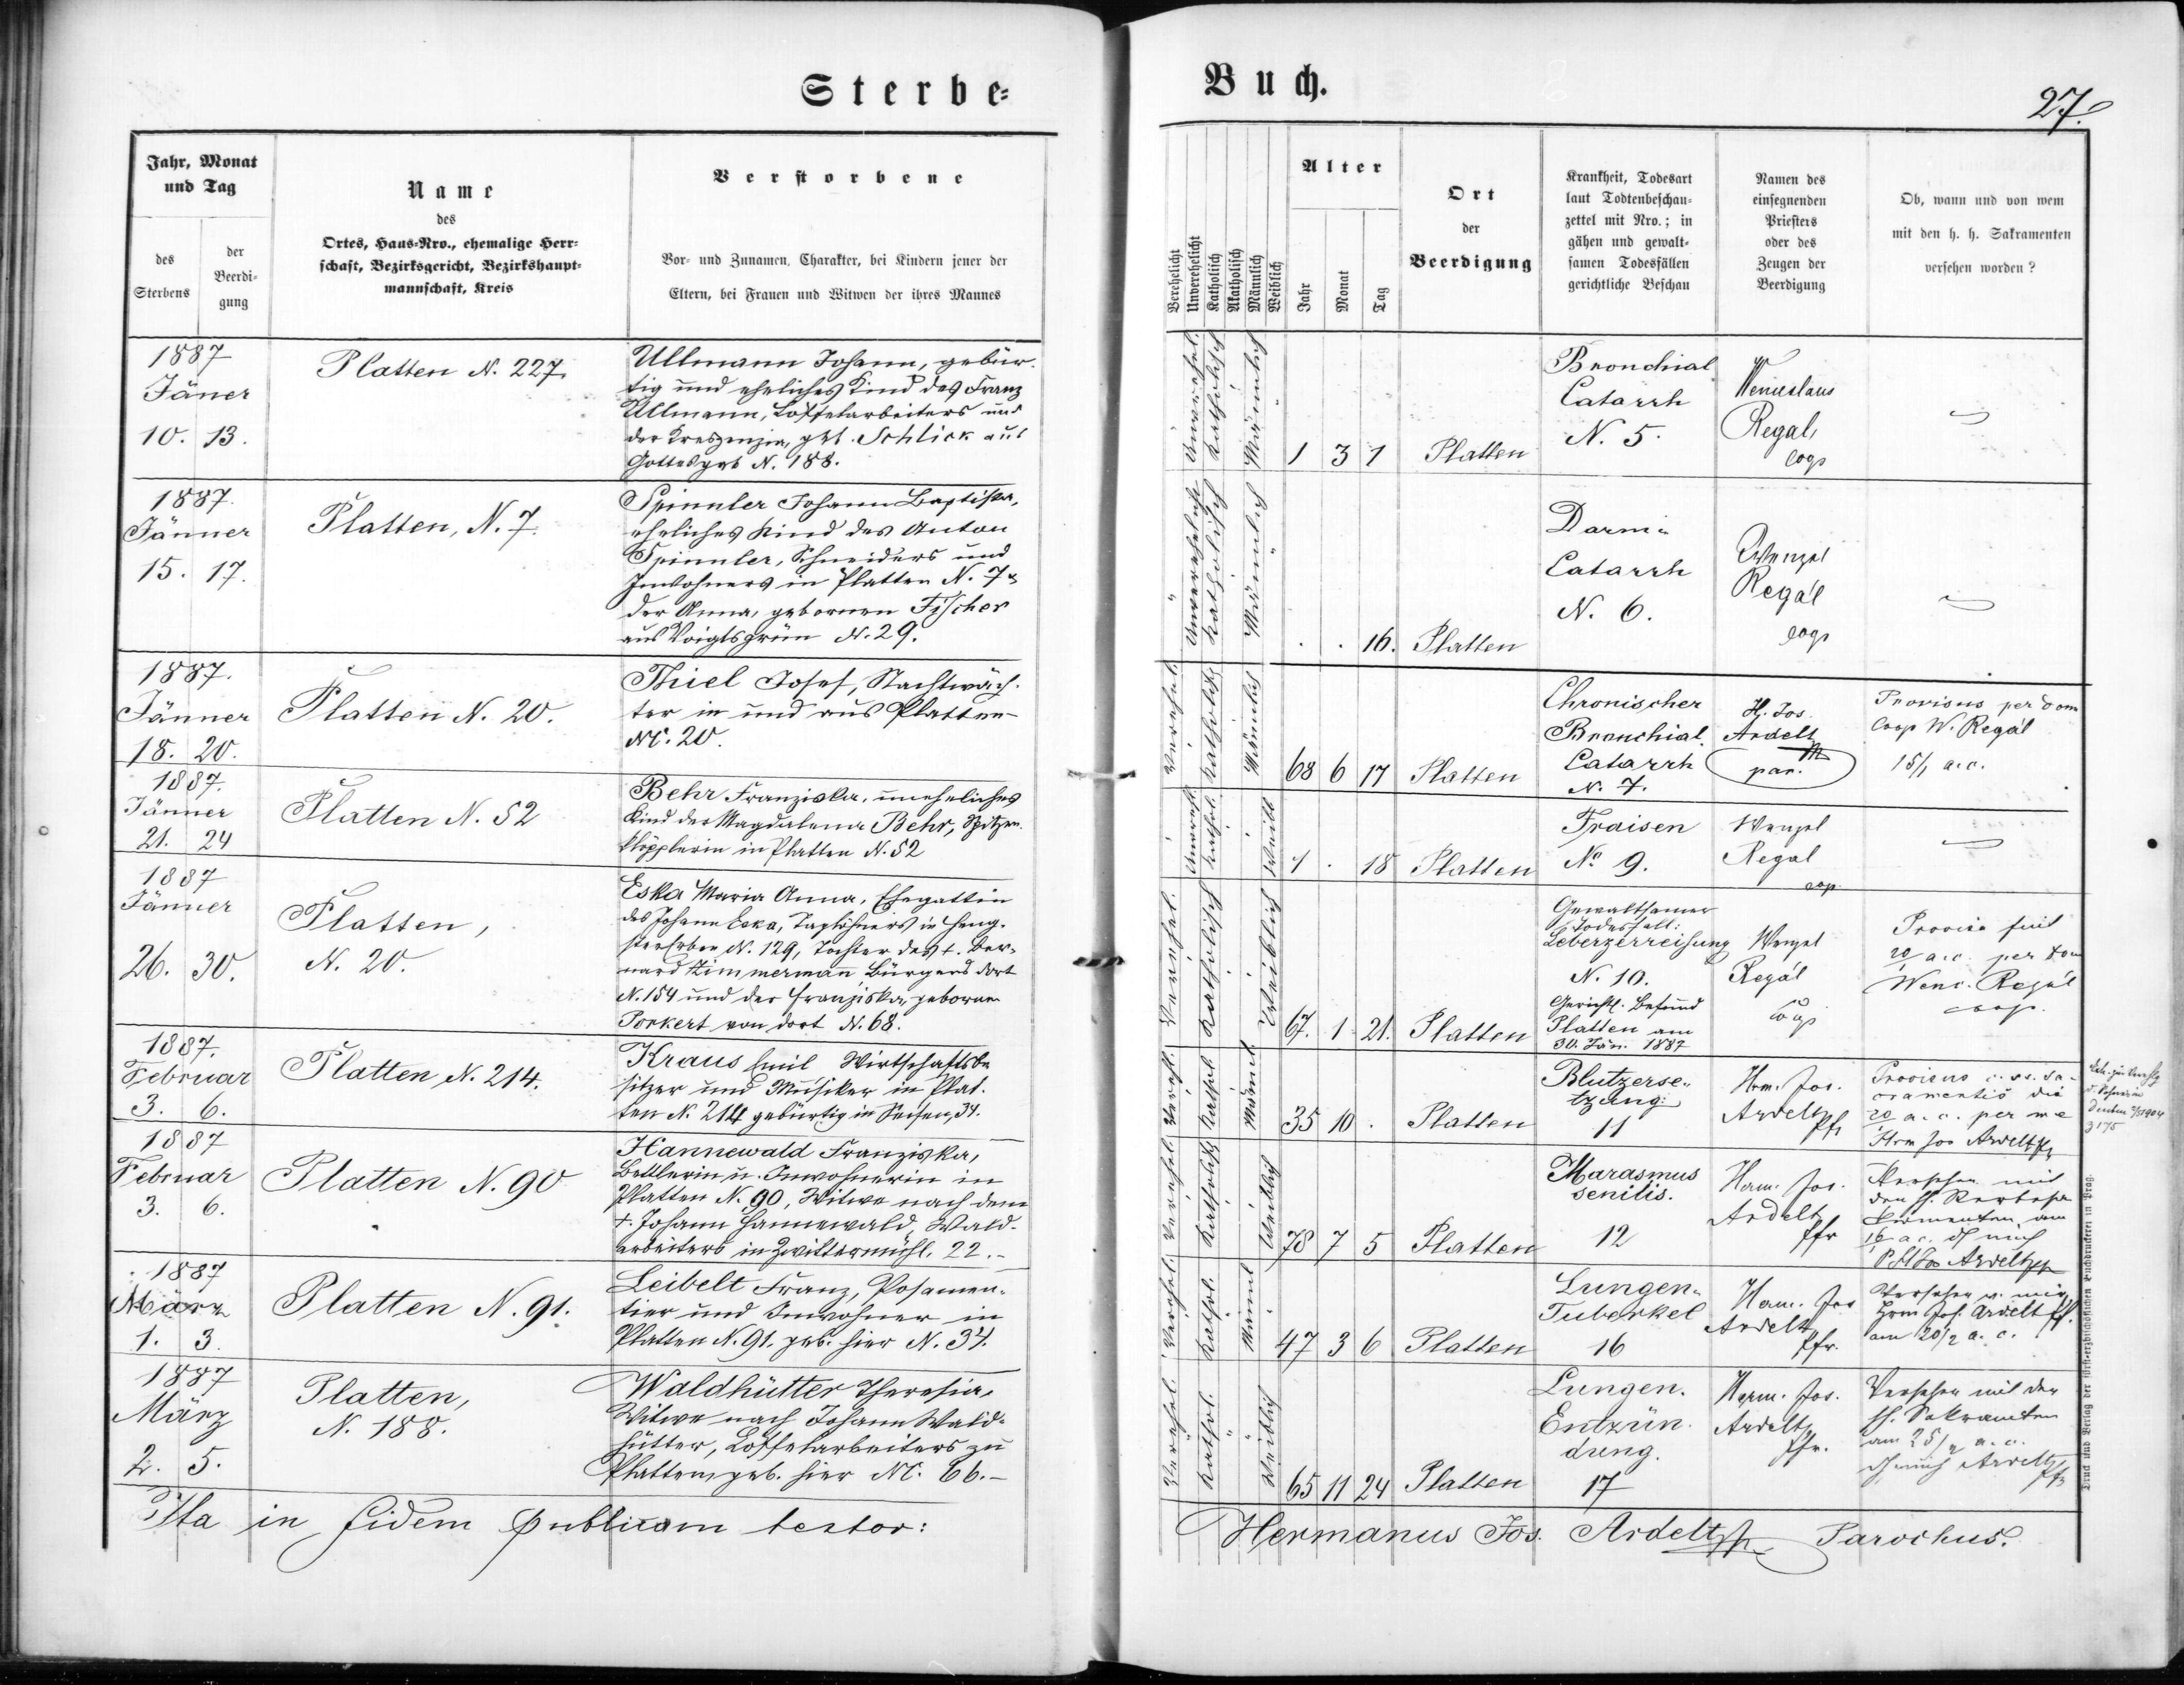 Sterbe-
Jahr, Monat
und Tag
des
Sterbens
der
Beerdi-
gung
Name
des
Ortes, Haus-Nro., ehemalige Herr-
schaft, Bezirksgericht, Bezirkshaupt-
mannschaft, Kreis
Verstorbene
Vor- und Zunamen, Charakter, bei Kindern jener der
Eltern, bei Frauen und Witwen der ihres Mannes
1887
Jäner
10. 13.
Platten N. 227.
Ullmann Johann, gebür-
tig und eheliches Kind des Franz
Ullmann, Löffelarbeiters und
der Kreszenzia, geb. Schlick aus
Gottesgab N. 188.
1887.
Jänner
15. 17.
Platten, N. 7.
Spinnler Johann Baptista,
eheliches Kind des Anton
Spinnler, Schneiders und
Inwohners in Platten N. 7 &
der Anna, gebornen Fischer
aus Voigtsgrün N. 29.
1887.
Jänner
18. 20.
Platten N. 20.
Thiel Josef, Nachtwäch-
ter in und aus Platten
NC. 20.
1887.
Jänner
21. 24
Platten N. 52
Behr Franziska, uneheliches
Kind der Magdalena Behr, Spitzen-
klöpplerin in Platten N. 52
1887
Jänner
26. 30.
Platten,
N. 20.
Eska Maria Anna, Ehegattin
des Johann Eska, Taglöhners in Heng-
stererben N. 129, Tochter des +. Ber-
nard Zimmerman Bürgers dort
N. 154 und der Franziska, geborne
Porkert von dort N. 68.
1887.
Februar
3. 6.
Platten N. 214.
Kraus Emil Wirtschaftsbe
sitzer und Musiker in Plat-
ten N. 214 gebürtig in Seifen, 34.
1887
Februar
3. 6.
Platten N. 90
Hannewald Franziska,
Bettlerin u. Inwohnerin in
Platten N. 90, Witwe nach dem
+. Johann Hannewald, Wald-
arbeiters in Zwittermühl. 22.-
1887
März
1. 3.
Platten N. 91.
Leibelt Franz, Posamen-
tier und Inwohner in
Platten N. 91. geb. hier N. 34.
1887
März
2. 5.
Platten,
N. 188.
Waldhütter Theresia,
Witwe nach Johann Wald-
hütter, Löffelarbeiters zu
Platten, geb. hier NC. 66.-
Ita in fidem publicam testor:
Buch.
27.
Verehelicht
Unverehelicht
Katholisch
Akatholisch
Männlich
Weiblich
Alter
Jahr
Monat
Tag
Ort
der
Beerdigung
Krankheit, Todesart
laut Todtenbeschau-
zettel mit Nro.; in
gähen und gewalt-
samen Todesfällen
gerichtliche Beschau
Namen des
einsegnenden
Priesters
oder des
Zeugen der
Beerdigung
Ob, wann und von wem
mit den h. h. Sakramenten
versehen worden?
Unverehel.
Katholisch
Männlich
1 3 1 Platten
Bronchial
Catarrh
N. 5.
Wenceslaus
Regal,
coop
Unverehelicht
Katholisch
Männlich
. . 16. Platten
Darm-
Catarrh
N. 6.
Wenzel
Regál
coop
Verehel.
Katholisch
Männlich
68 6 17 Platten
Chronischer
Bronchial
Catarrh
N. 7.
H. Jos.
Ardelt
par.
Provisus per Dom
Coop W. Regál
15/1 a.c.
Unvereh.
Kathol.
Weibl
1 . 18 Platten
Fraisen
No 9.
Wenzel
Regal
coop
Verehel.
Katholisch
Weiblich
67. 1 21. Platten
Gewaltsamer
Todesfall:
Leberzerreißung
N. 10.
Gerichtl. Befund
Platten am
30. Jän. 1887
Wenzel
Regál
coop
Provisa fuit
20/1 a.c. per Dom
Wenc. Regál
coop.
Vereh.
Kathol.
Männl.
35 10 . Platten
Blutzerse-
tzung:
11
Herm. Jos.
Ardelt
Pfr
Provisus c. ss. Sa-
cramentis die
20 a.c. per me
Herm Jos Ardelt
Verehel.
Katholisch
Weiblich
78 7 5 Platten
Marasmus
senilis.
12
Herm. Jos.
Ardelt
Pfr
Versehen mit
den h. Sterbesa-
kramenten am
16 a.c. dh mich
P. H Jos Ardelt
Verehel.
Kathol.
Männl
47 3 6 Platten
Lungen-
Tuberkel
16
Herm. Jos
Ardelt
Pfr.
Versehen v. mir
Herm Jos. Ardelt Pf.
am 20/2 a. c.
Verehel.
Kathol.
Weiblich
65 11 24 Platten
Lungen-
Entzün-
dung.
17
Herm. Jos.
Ardelt
Pfr.
Versehen mit den
hh. Sakramenten
am 25/2 a.c.
dh mich Ardelt
Pfr
Hermanus Jos. Ardelt Parochus.
Druck und Verlag der fürst-erzbischöflichen Buchdruckerei in Prag.